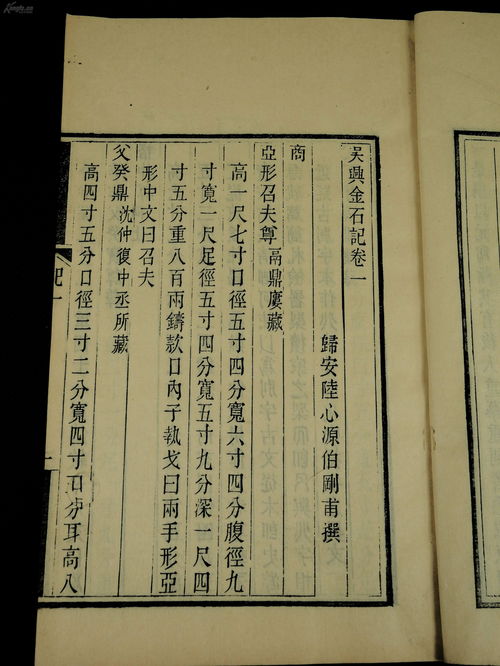 吳興金石記卷一
歸安陸心源伯剛甫撰
商
亞形召夫尊 鬲鼎廔藏
高一尺七寸口徑五寸四分寬六寸四分腹徑九
寸寬一尺足徑五寸四分寬五寸九分深一尺四
寸五分重八百兩鑄款口內子執戈曰兩手形亞
形中文曰召夫
父癸鼎 沈仲復中丞所藏
高四寸五分口徑三寸二分寬四寸耳高八
記一
一